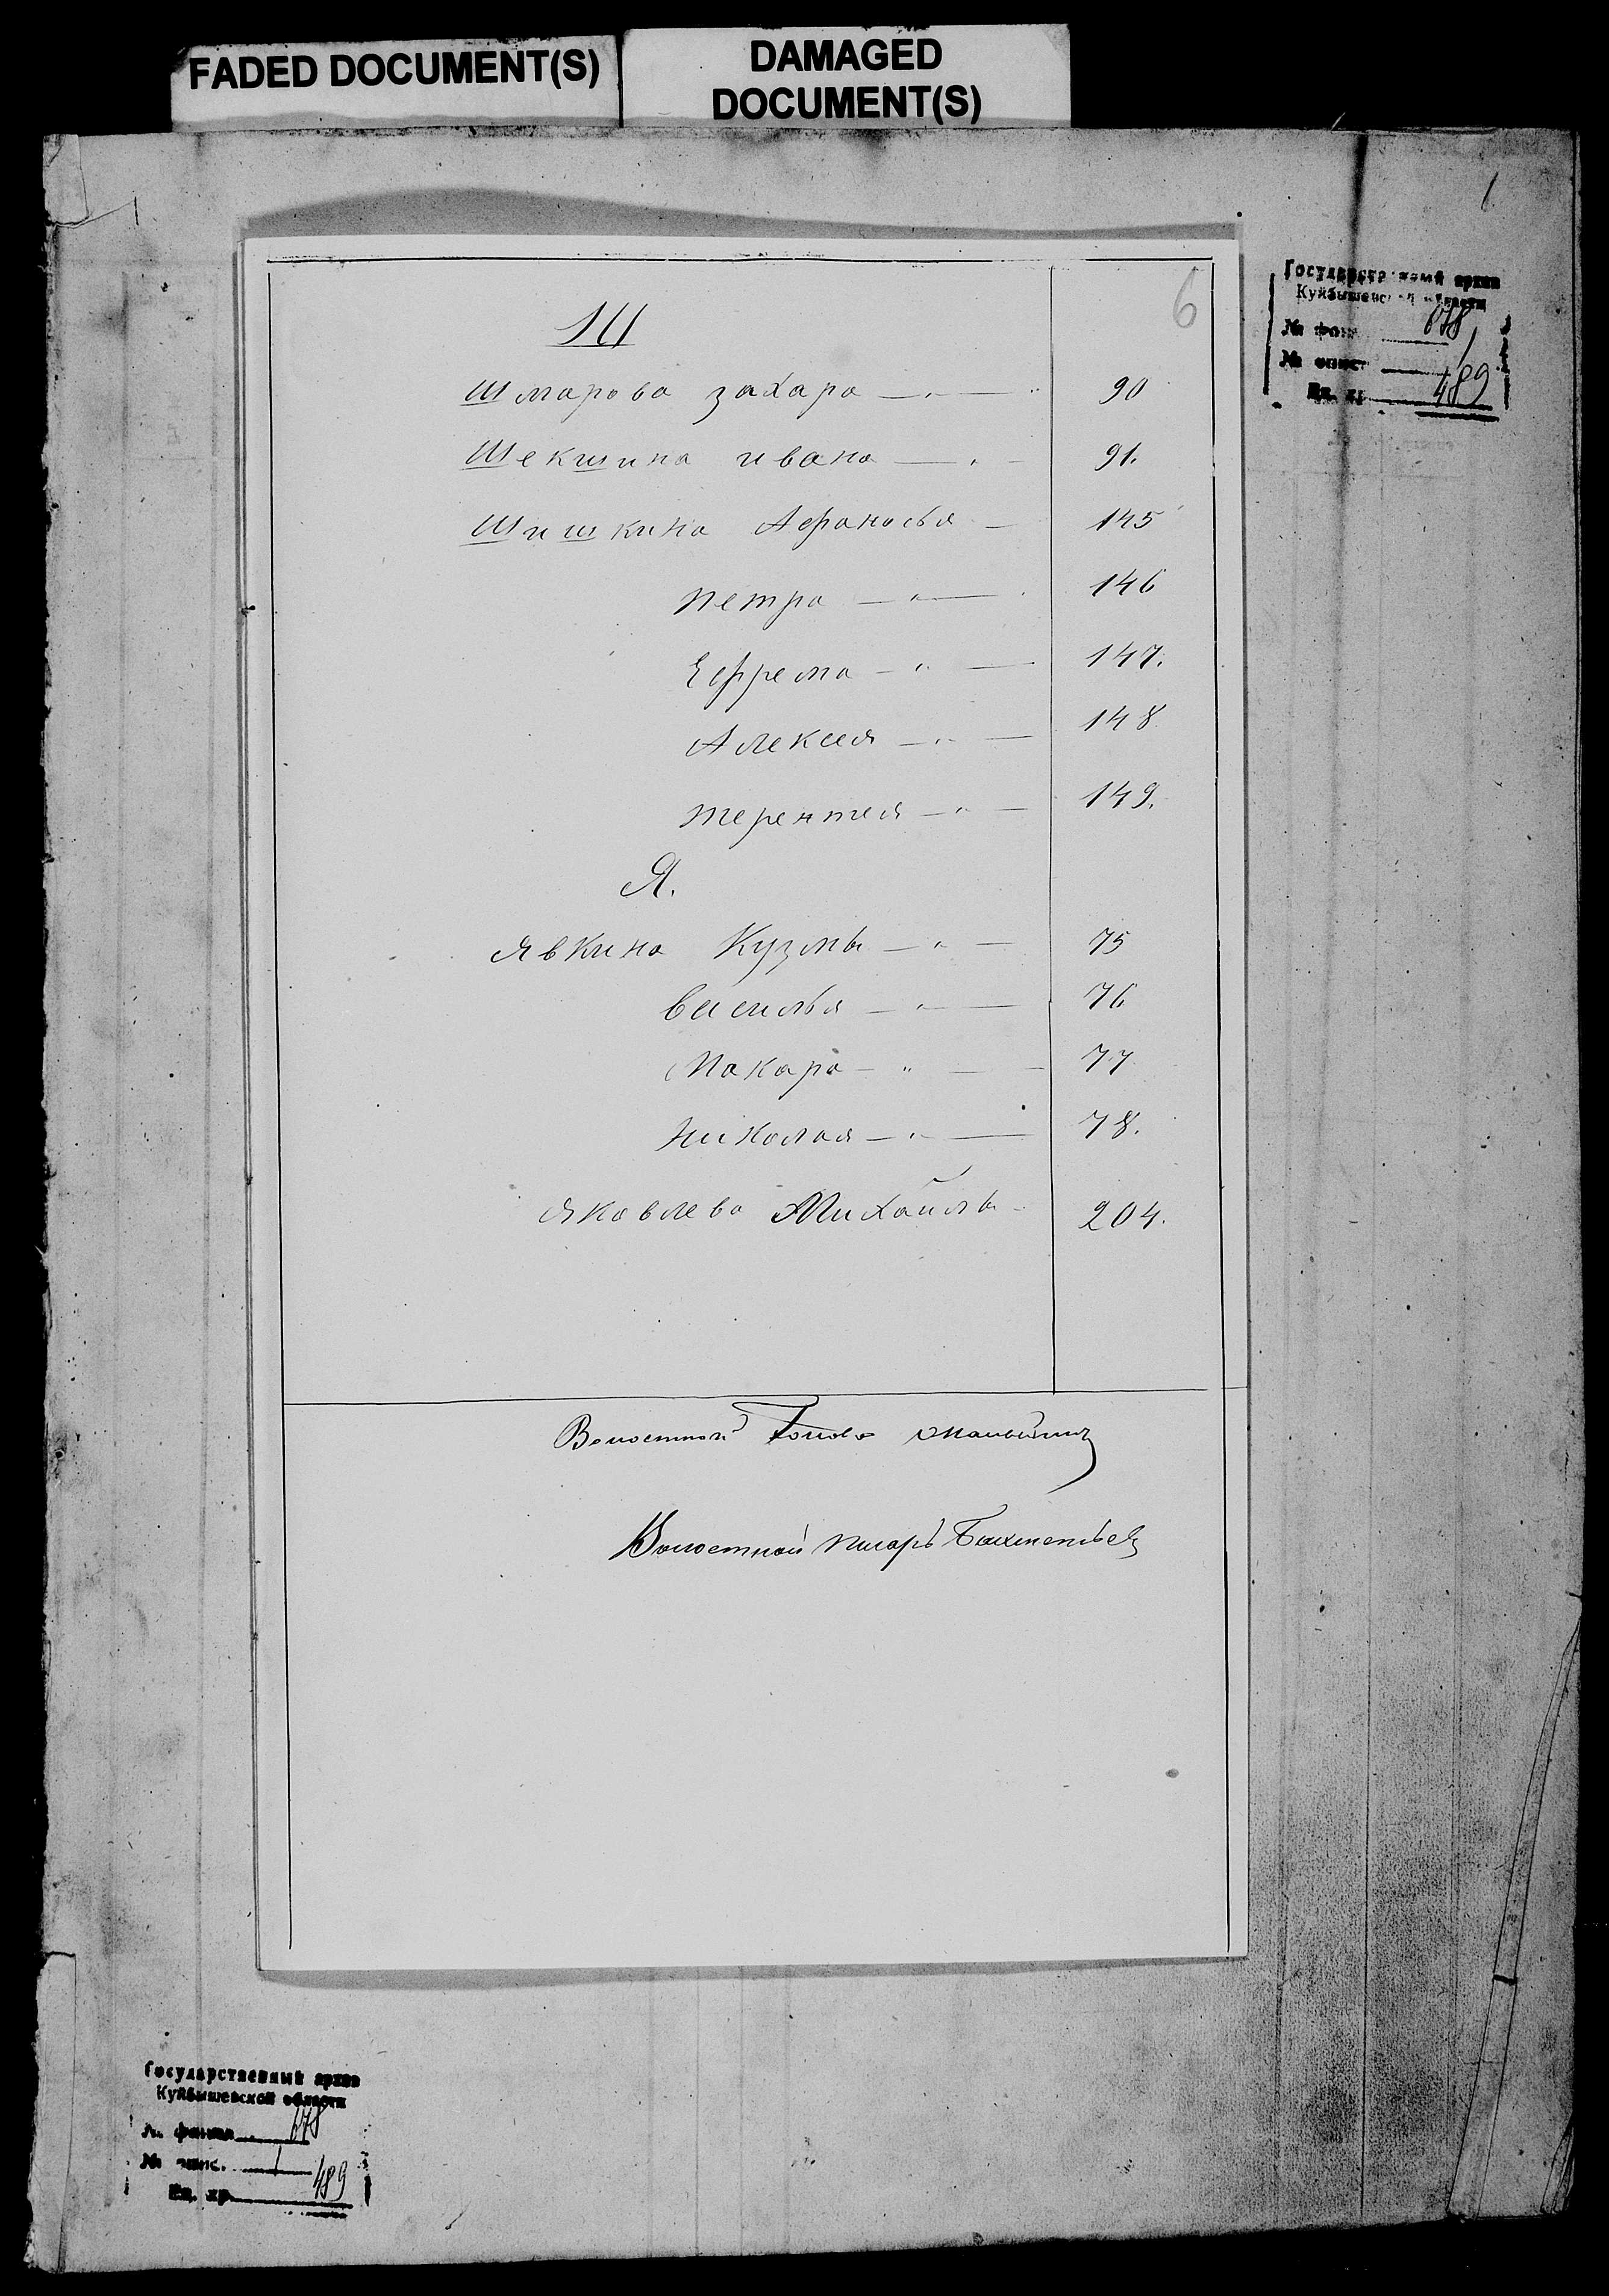 FADED DOCUMENT(S)
DAMAGED
DOCUMENT(S)
6
Государственный архив
Куйбышевской области
№ фон. 678
№ опис. 1
Ед. хр. 489
Ш
Шмарова захара 90
Шекшина ивана 91.
Шишкина Афанасья 145
петра 146
Ефрема 147.
Алексея 148
терентея 149.
Я.
Явкина Кузмы 75
василья 76
Макара 77
николая 78.
Яковлева Михайлы 204.
Волостной Голова
Волостной писарь Бахметьев
Государственный архив
Куйбышевской области
№ фонда 678
№ опис. 1
Ед. хр. 489